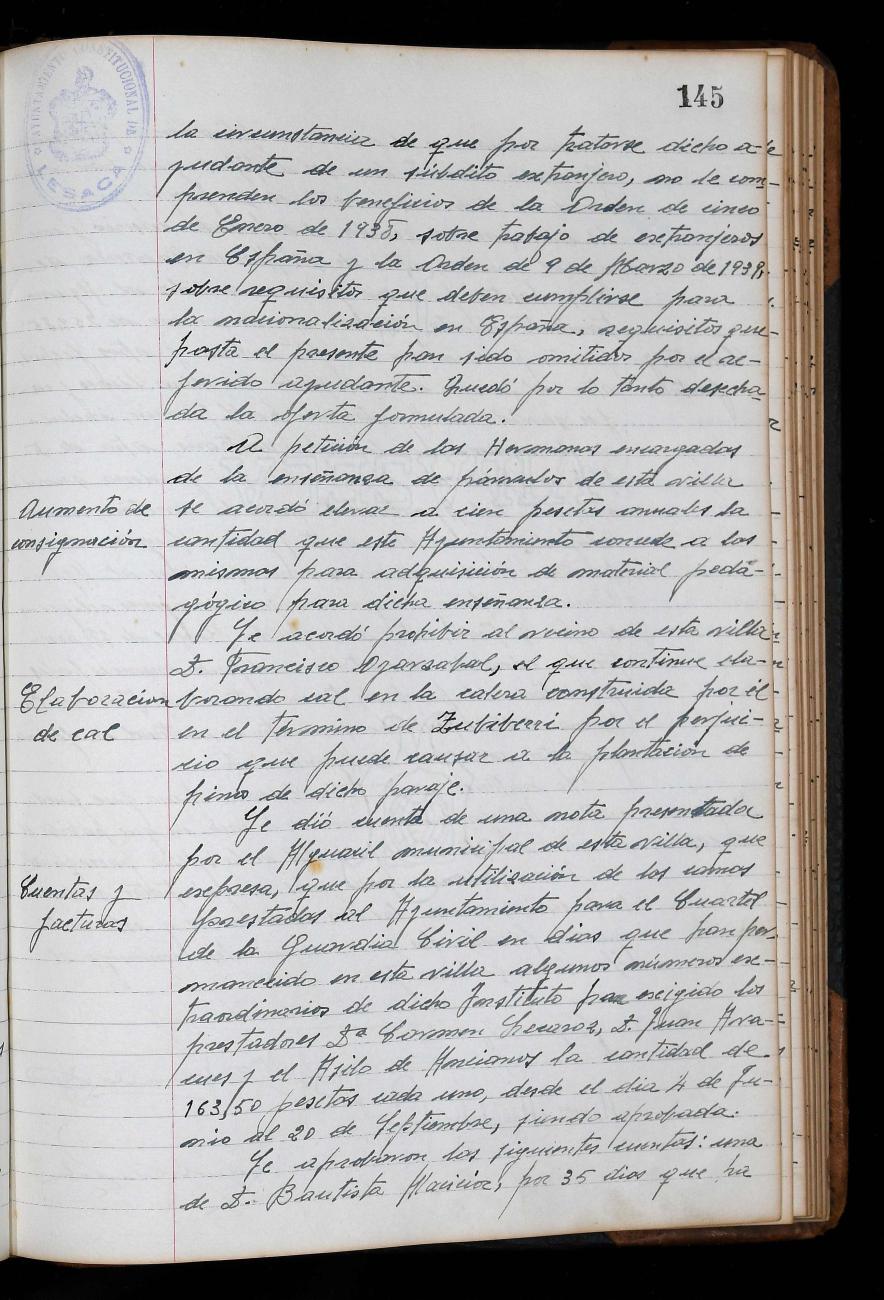 145
AYUNTAMIENTO CONSTITUCIONAL DE
LESACA
la circunstancia de que por tratarse dicho a-
yudante de un súbdito extranjero, no le com-
prenden los beneficios de la Orden de cinco
de Enero de 1938, sobre trabajo de extranjeros
en España y la Orden de 9 de Marzo de 1939,
sobre requisitos que deben cumplirse para
la nacionalización en España, requisitos que
hasta el presente han sido omitidos por el re-
ferido ayudante. Quedó por lo tanto desecha-
da la oferta formulada.
A petición de las Hermanas encargadas
de la enseñanza de párvulos de esta villa
Aumento de
consignación
se acordó elevar a cien pesetas anuales la
cantidad que este Ayuntamiento concede a las
mismas para adquisición de material peda-
gógico para dicha enseñanza.
Se acordó prohibir al vecino de esta villa
D. Francisco Ozarzabal, el que continue ela-
Elaboracion
de cal
borando cal en la calera construida por él
en el término de Zubiberri por el perjui-
cio que puede causar a la plantación de
pinos de dicho paraje.
Se dió cuenta de una nota presentada
por el Alguacil municipal de esta villa, que
Cuentas y
facturas
expresa, que por la utilización de las camas
prestadas al Ayuntamiento para el Cuartel
de la Guardia Civil en dias que han per-
manecido en esta villa algunos números ex-
traordinarios de dicho Instituto han exigido los
prestadores Dª Carmen Lecaroz, D. Juan Ara-
nes y el Asilo de Ancianos la cantidad de
163,50 pesetas cada uno, desde el dia 4 de Ju-
nio al 20 de Septiembre, siendo aprobada.
Se aprobaron las siguientes cuentas: una
de D. Bautista por 35 dias que ha